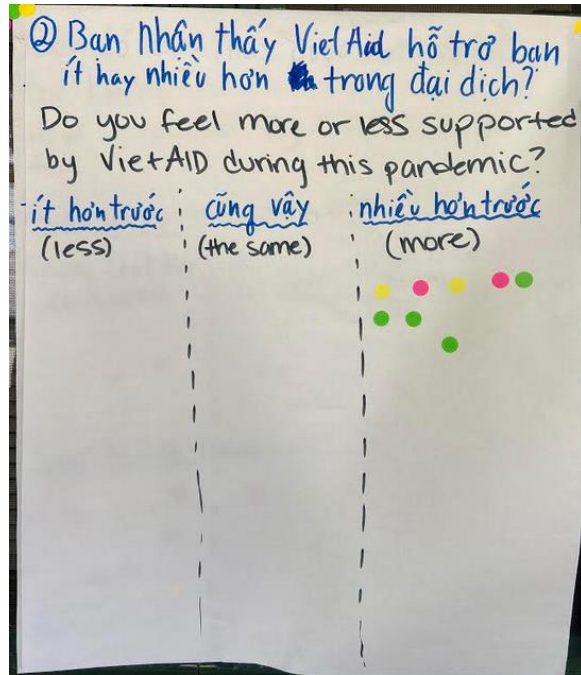 ② Bạn Nhân thấy Viet Aid hỗ trợ bạn
ít hay nhiều hơn trong đại dịch?
Do you feel more or less supported
by VietAID during this pandemic?
ít hơn trước cũng vậy nhiều hơn trước
(less) (the same) (more)